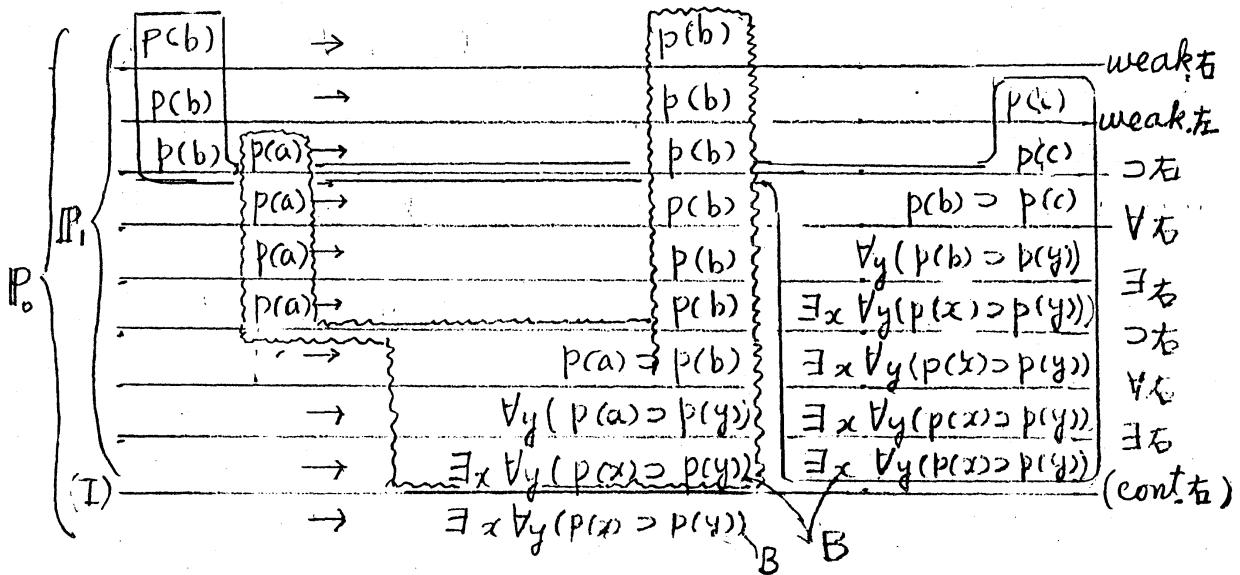 p(b) → p(b)
weak.右
p(b) → p(b) p(c)
weak.左
p(b) p(a) → p(b) p(c)
⊃右
p(a) → p(b) p(b) ⊃ p(c)
∀右
p(a) → p(b) ∀y(p(b) ⊃ p(y))
∃右
p(a) → p(b) ∃x ∀y(p(x) ⊃ p(y))
⊃右
→ p(a) ⊃ p(b) ∃x ∀y(p(x) ⊃ p(y))
∀右
→ ∀y(p(a) ⊃ p(y)) ∃x ∀y(p(x) ⊃ p(y))
∃右
→ ∃x ∀y(p(x) ⊃ p(y)) ∃x ∀y(p(x) ⊃ p(y))
(I) (cont.右)
→ ∃x ∀y(p(x) ⊃ p(y)) B B
ℙ₁
ℙ₀